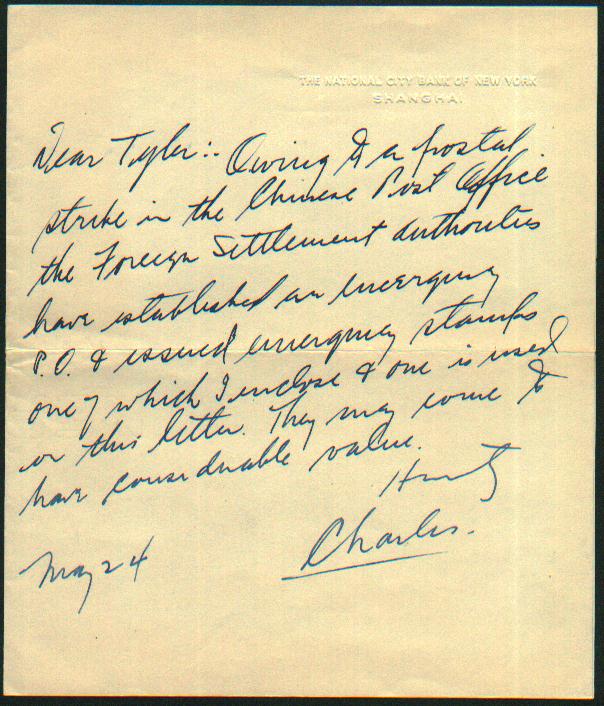 THE NATIONAL CITY BANK OF NEW YORK
SHANGHAI.
Dear Tyler:- Owing to a postal
strike in the Chinese Post Office
the Foreign Settlement authorities
have established an emergency
P.O. & issued emergency stamps
one of which I enclose & one is used
on this letter. They may come to
have considerable value.
Charles.
May 24